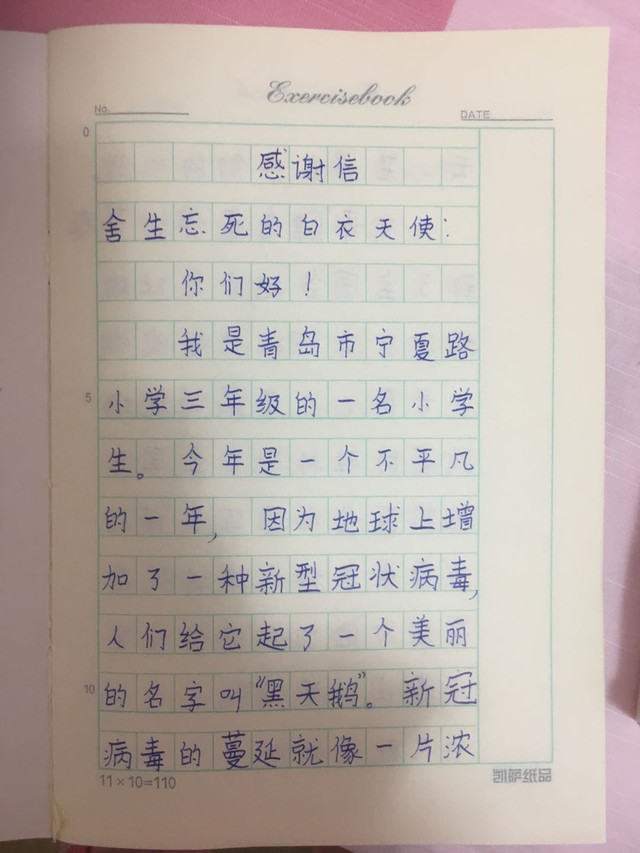 Exercisebook
No.
DATE
0
感谢信
舍生忘死的白衣天使：
你们好！
我是青岛市宁夏路
5
小学三年级的一名小学
生。今年是一个不平凡
的一年，因为地球上增
加了一种新型冠状病毒，
人们给它起了一个美丽
10
的名字叫“黑天鹅”。新冠
病毒的蔓延就像一片浓
11×10=110
凯萨纸品